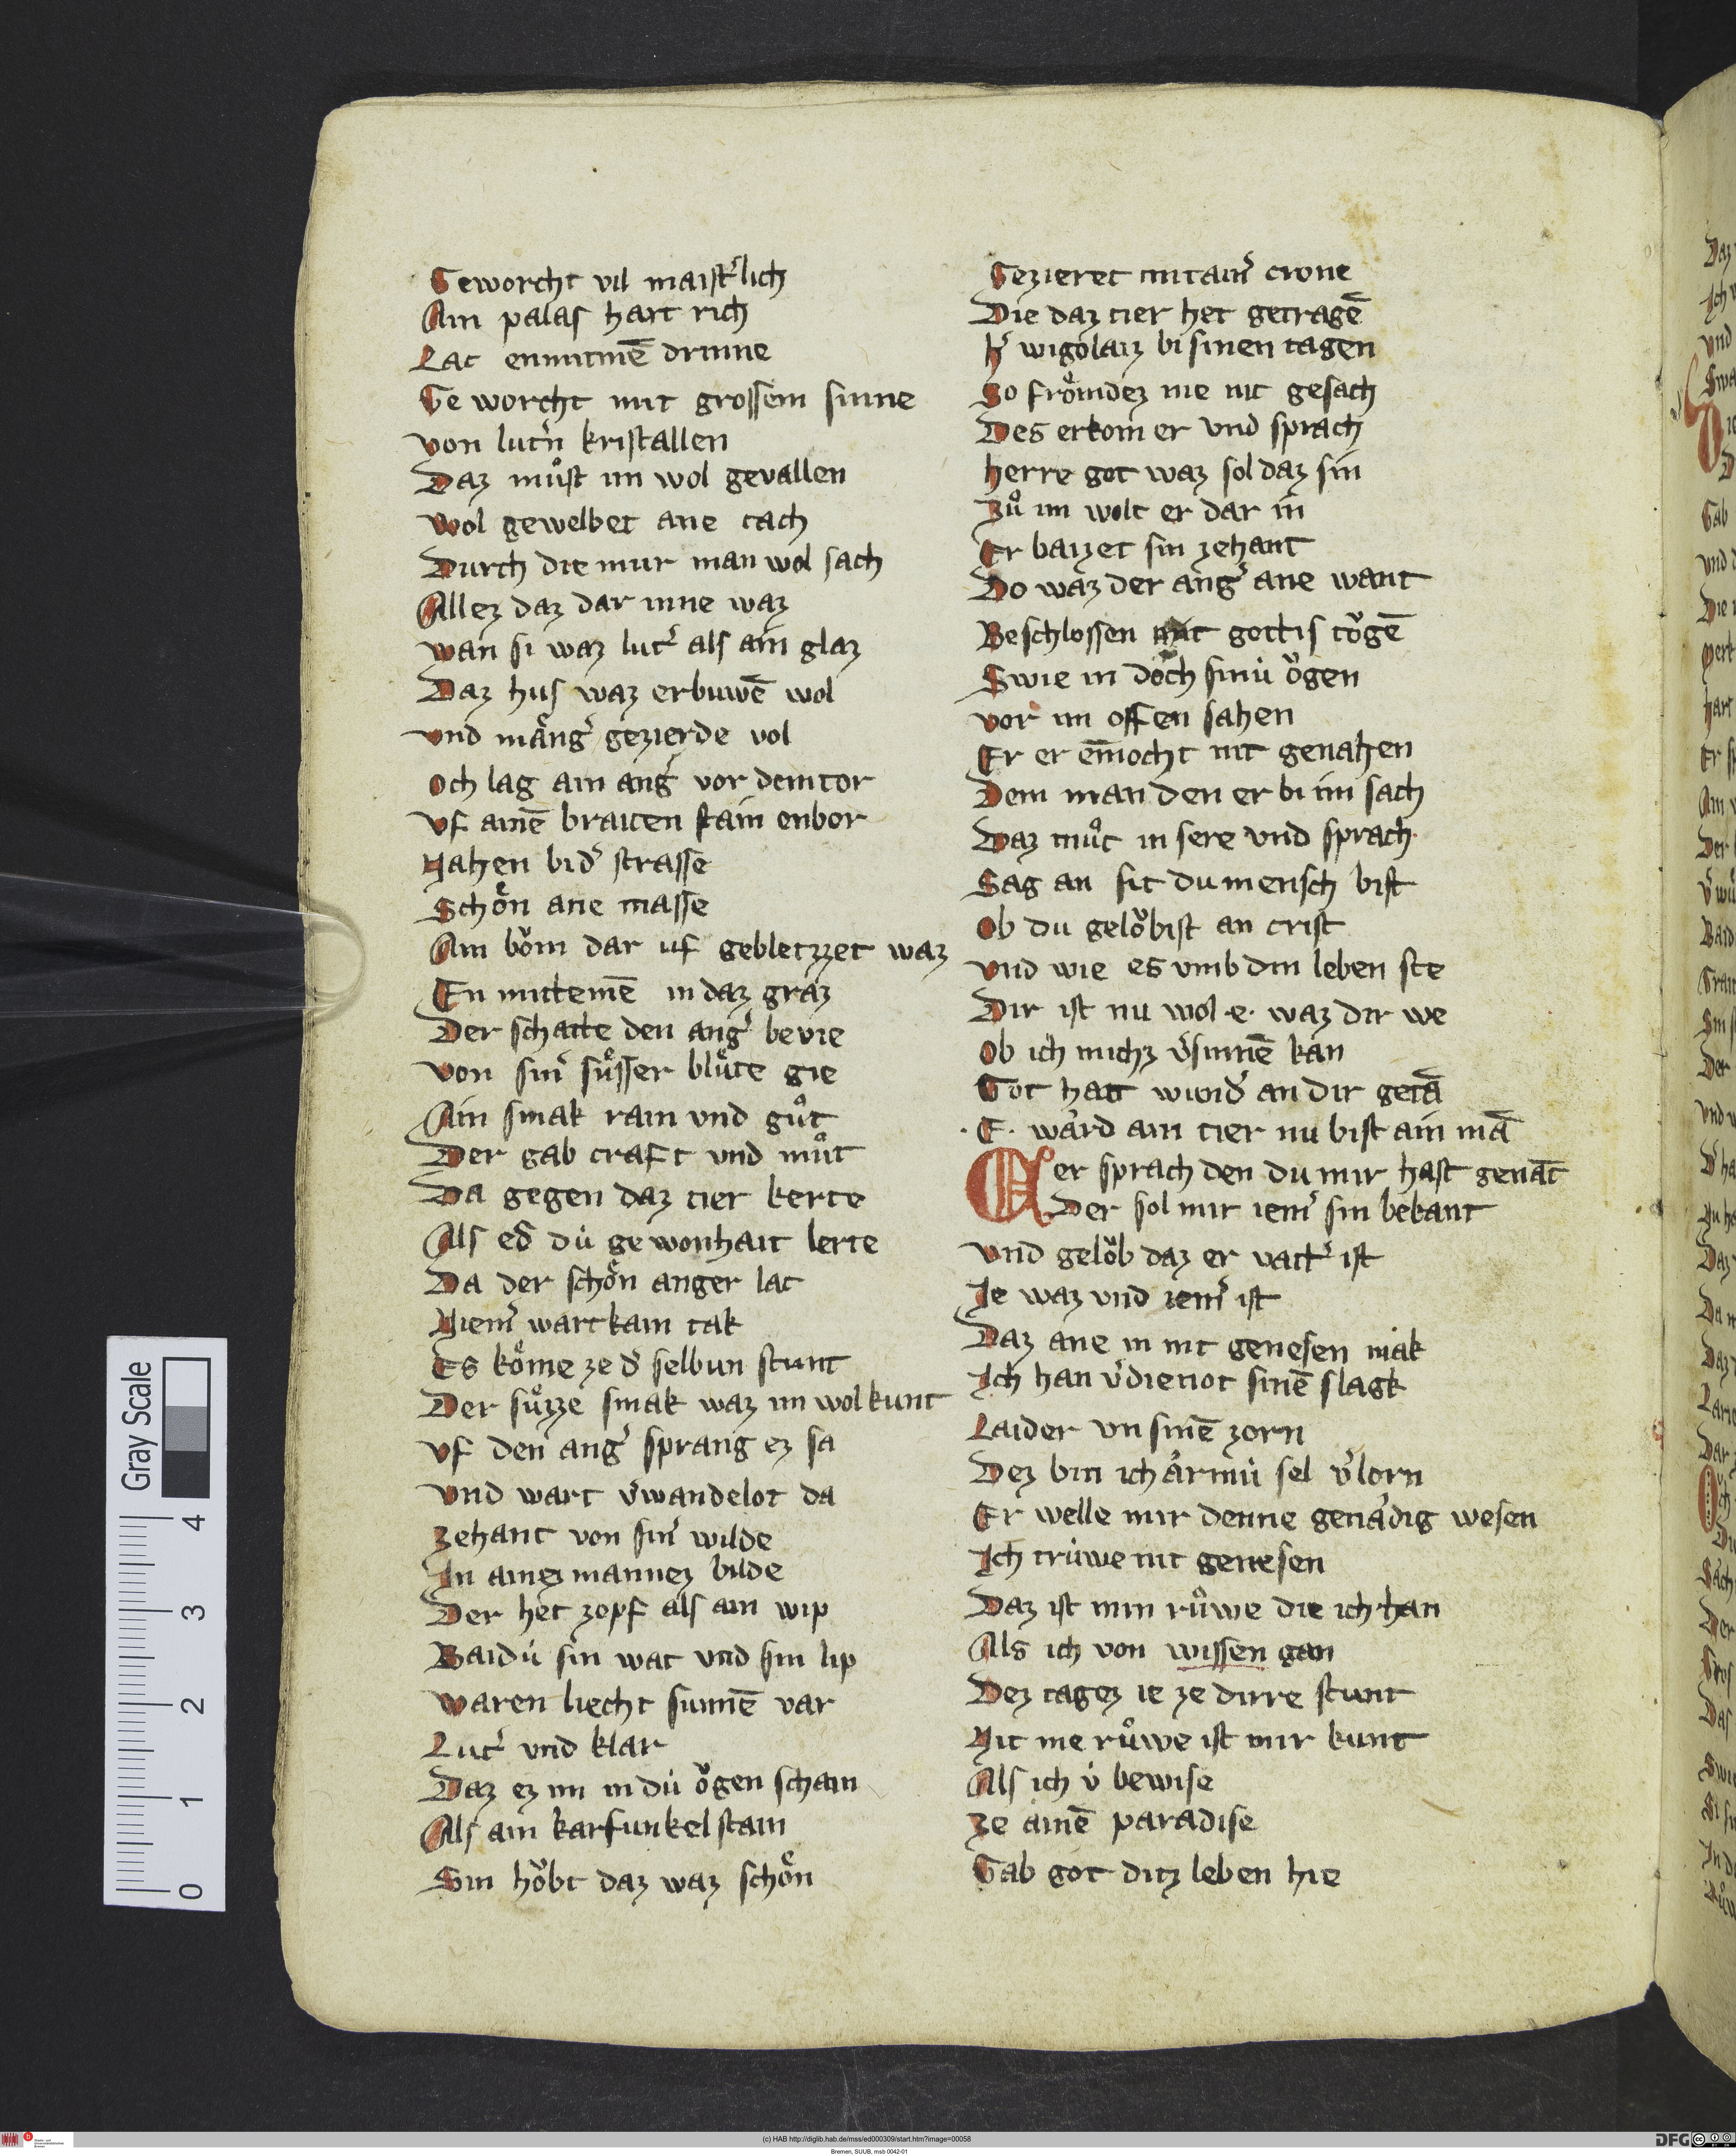 Geworcht vil maist͛lich
Ain palas hart rich
Lac enmittmē drinne
Ge worcht mit grossem sinne
von lut͛n kristallen
Daz muͦst im wol gevallen
Wol gewelbet ane tach
Durch die mur man wol sach
Allez daz dar inne waz
wan si waz lut͛ als ain glaz
Daz hus waz erbuwē wol
vnd mäng͛ gezierde vol
Och lag ain ang͛ vor dem tor
vf ainē braiten stain enbor
Nahen bi d͛ strasse
Schoͤn ane masse
Ain boͮm dar uf gebletzzet waz
En mittemē in daz graz
Der schatte den ang͛ bevie
von sin͛ suͤsser bluͤte gie
Ain smak rain vnd guͦt
Der gab craft vnd muͦt
Da gegen daz tier kerte
Als ed͛ dú gewonhait lerte
Da der schoͤn anger lac
Niem͛ wart kain tak
Es koͤme ze d͛ selbun stunt
Der suͤzze smak waz im wol kunt
vf den ang͛ sprang ez sa
vnd wart v͛wandelot da
zehant von sin͛ wilde
In ainez mannez bilde
Der het zopf als ain wip
Baidú sin wat vnd sin lip
waren liecht sunnē var
Lut͛ vnd klar
Daz ez im in dú oͮgen schain
Als ain karfunkel stain
Sin hoͮbt daz waz schoͤn
Gezieret mit ain͛ crone
Die daz tier het getragē
h͛ wigolaiz bi sinen tagen
So froͤmdez nie nit gesach
Des erkom er vnd sprach
herre got waz sol daz sin
Zuͦ im wolt er dar in
Er baizet sin zehant
Do waz der ang͛ ane want
Beschlossen mit gottis toͮgē
Swie in doch sinú oͮgen
vor im offen sahen
Er er enmocht nit genahen
Dem man den er bi im sach
Daz muͦt in sere vnd sprach
Sag an sit du mensch bist
Ob du geloͮbist an crist
vnd wie es vmb din leben ste
Dir ist nu wol ·e· waz dir we
Ob ich michz v͛sinnē kan
Got hatt wund͛ an dir getā
·E· ward ain tier nu bist ain mā
Er sprach den du mir hast genāt
Der sol mir iem͛ sin bekant
vnd geloͮb daz er vatt͛ ist
Ie waz vnd iem͛ ist
Daz ane in nit genesen mak
Ich han v͛dienot sinē slagk
Laider vn sinē zorn
Dez bin ich armú sel v͛lorn
Er welle mir denne genädig wesen
Ich trúwe nit genesen
Daz ist min ruͦwe die ich han
Als ich von wissen gan
Dez tagez ie ze dirre stunt
Nit me ruͦwe ist mir kunt
Als ich v́ bewise
ze ainē paradise
Gab got ditz leben hie
Gray Scale
4
3
2
1
0
(c) HAB http://diglib.hab.de/mss/ed000309/start.htm?image=00058
Bremen, SUUB, msb 0042-01
DFG